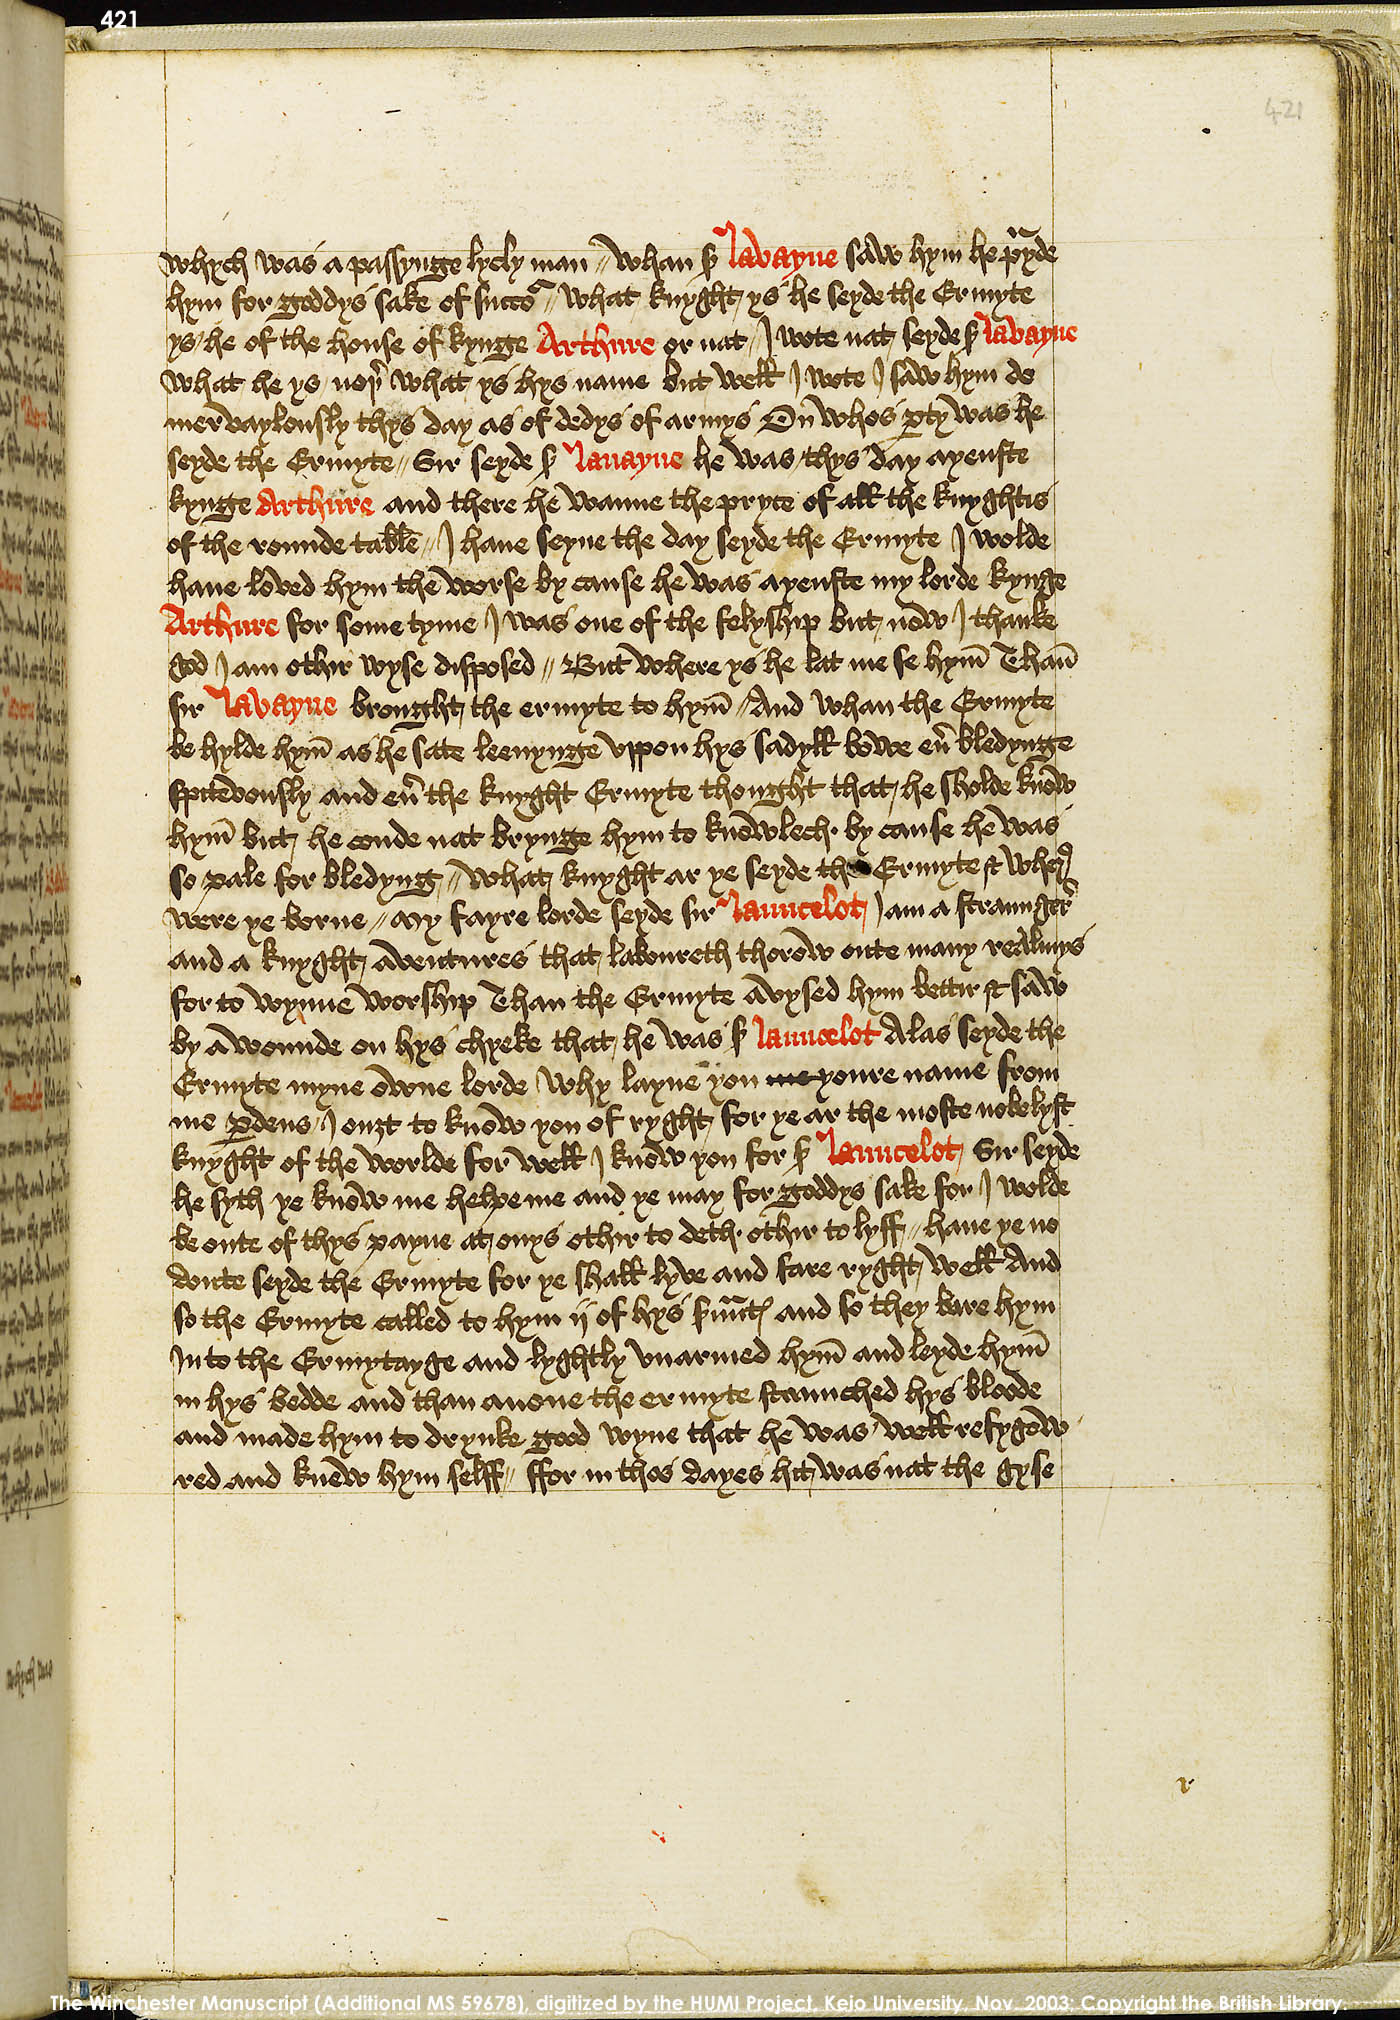 421
421
whych was a passynge lycly man // whan sr lavayne saw hym he prayde
hym for goddys sake of succor // what knyght ys he seyde the Ermyte
ys he of the house of kynge Arthure or nat // I wote nat seyde sr lavayne
what he ys nor what ys hys name but well I wote I saw hym do
mervaylously thys day as of dedys of armys On whos party was he
seyde the Ermyte // Sir seyde sr lauayne he was thys day ayenste
kynge Arthure and there he wanne the pryce of all the knyghtis
of the rounde table // I haue seyne the day seyde the Ermyte I wolde
haue loved hym the worse by cause he was ayenste my lorde kynge
Arthure for some tyme I was one of the felyship but now I thanke
god I am othir wyse disposed // But where ys he lat me se hym Than
sir lavayne brought the ermyte to hym // And whan the Ermyte
be hylde hym as he sate leenynge vppon hys sadyll bowe eur bledynge
spitevously and eur the knyght Ermyte thought that he sholde know
hym but he coude nat brynge hym to knowlech by cause he was
so pale for bledyng // what knyght ar ye seyde the Ermyte & where
were ye borne // My fayre lorde seyde sir launcelot I am a straunger
and a knyght aventures that laboureth thorow oute many realmys
for to wynne worship Than the Ermyte avysed hym bettir & saw
by a wounde on hys chyeke that he was sr launcelot Alas seyde the
Ermyte myne owne lorde why layne you me youre name from
me perdeus I ouzt to know you of ryght for ye ar the moste nobelyst
knyght of the worlde for well I know you for sr launcelot Sir seyde
he syth ye know me helpe me and ye may for goddys sake for I wolde
be oute of thys payne at onys othir to deth othir to lyff // haue ye no
doute seyde the Ermyte for ye shall lyve and fare ryght well And
so the Ermyte called to hym ij of hys seruantes and so they bare hym
In to the Ermytayge and lyghtly vnarmed hym and leyde hym
in hys bedde and than anone the ermyte staunched hys bloode
and made hym to drynke good wyne that he was well refygow
red and knew hym selff // ffor in thos dayes hit was nat the gyse
whych was
The Winchester Manuscript (Additional MS 59678), digitized by the HUMI Project, Keio University, Nov. 2003; Copyright the British Library.